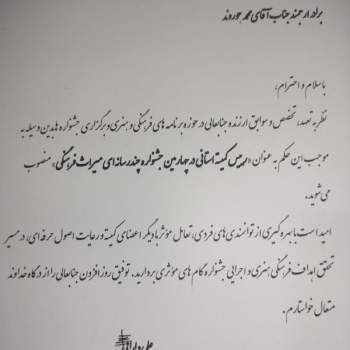 برادر ارجمند جناب آقای محمد جوروند
با سلام و احترام،
نظر به تعهد، تخصص و سوابق ارزنده جنابعالی در حوزه برنامه های فرهنگی و هنری و برگزاری جشنواره ها بدین وسیله به
موجب این حکم به عنوان «عضو کمیته استانی در چهارمین جشنواره چندرسانه ای میراث فرهنگی» منصوب
می شوید.
امید است با بهره گیری از توانمندی های فردی، تعامل مؤثر با دیگر اعضای کمیته و رعایت اصول حرفه ای، در مسیر
تحقق اهداف فرهنگی، هنری و اجرایی جشنواره گام های مؤثری بردارید. توفیق روزافزون جنابعالی را از درگاه خداوند
متعال خواستارم.